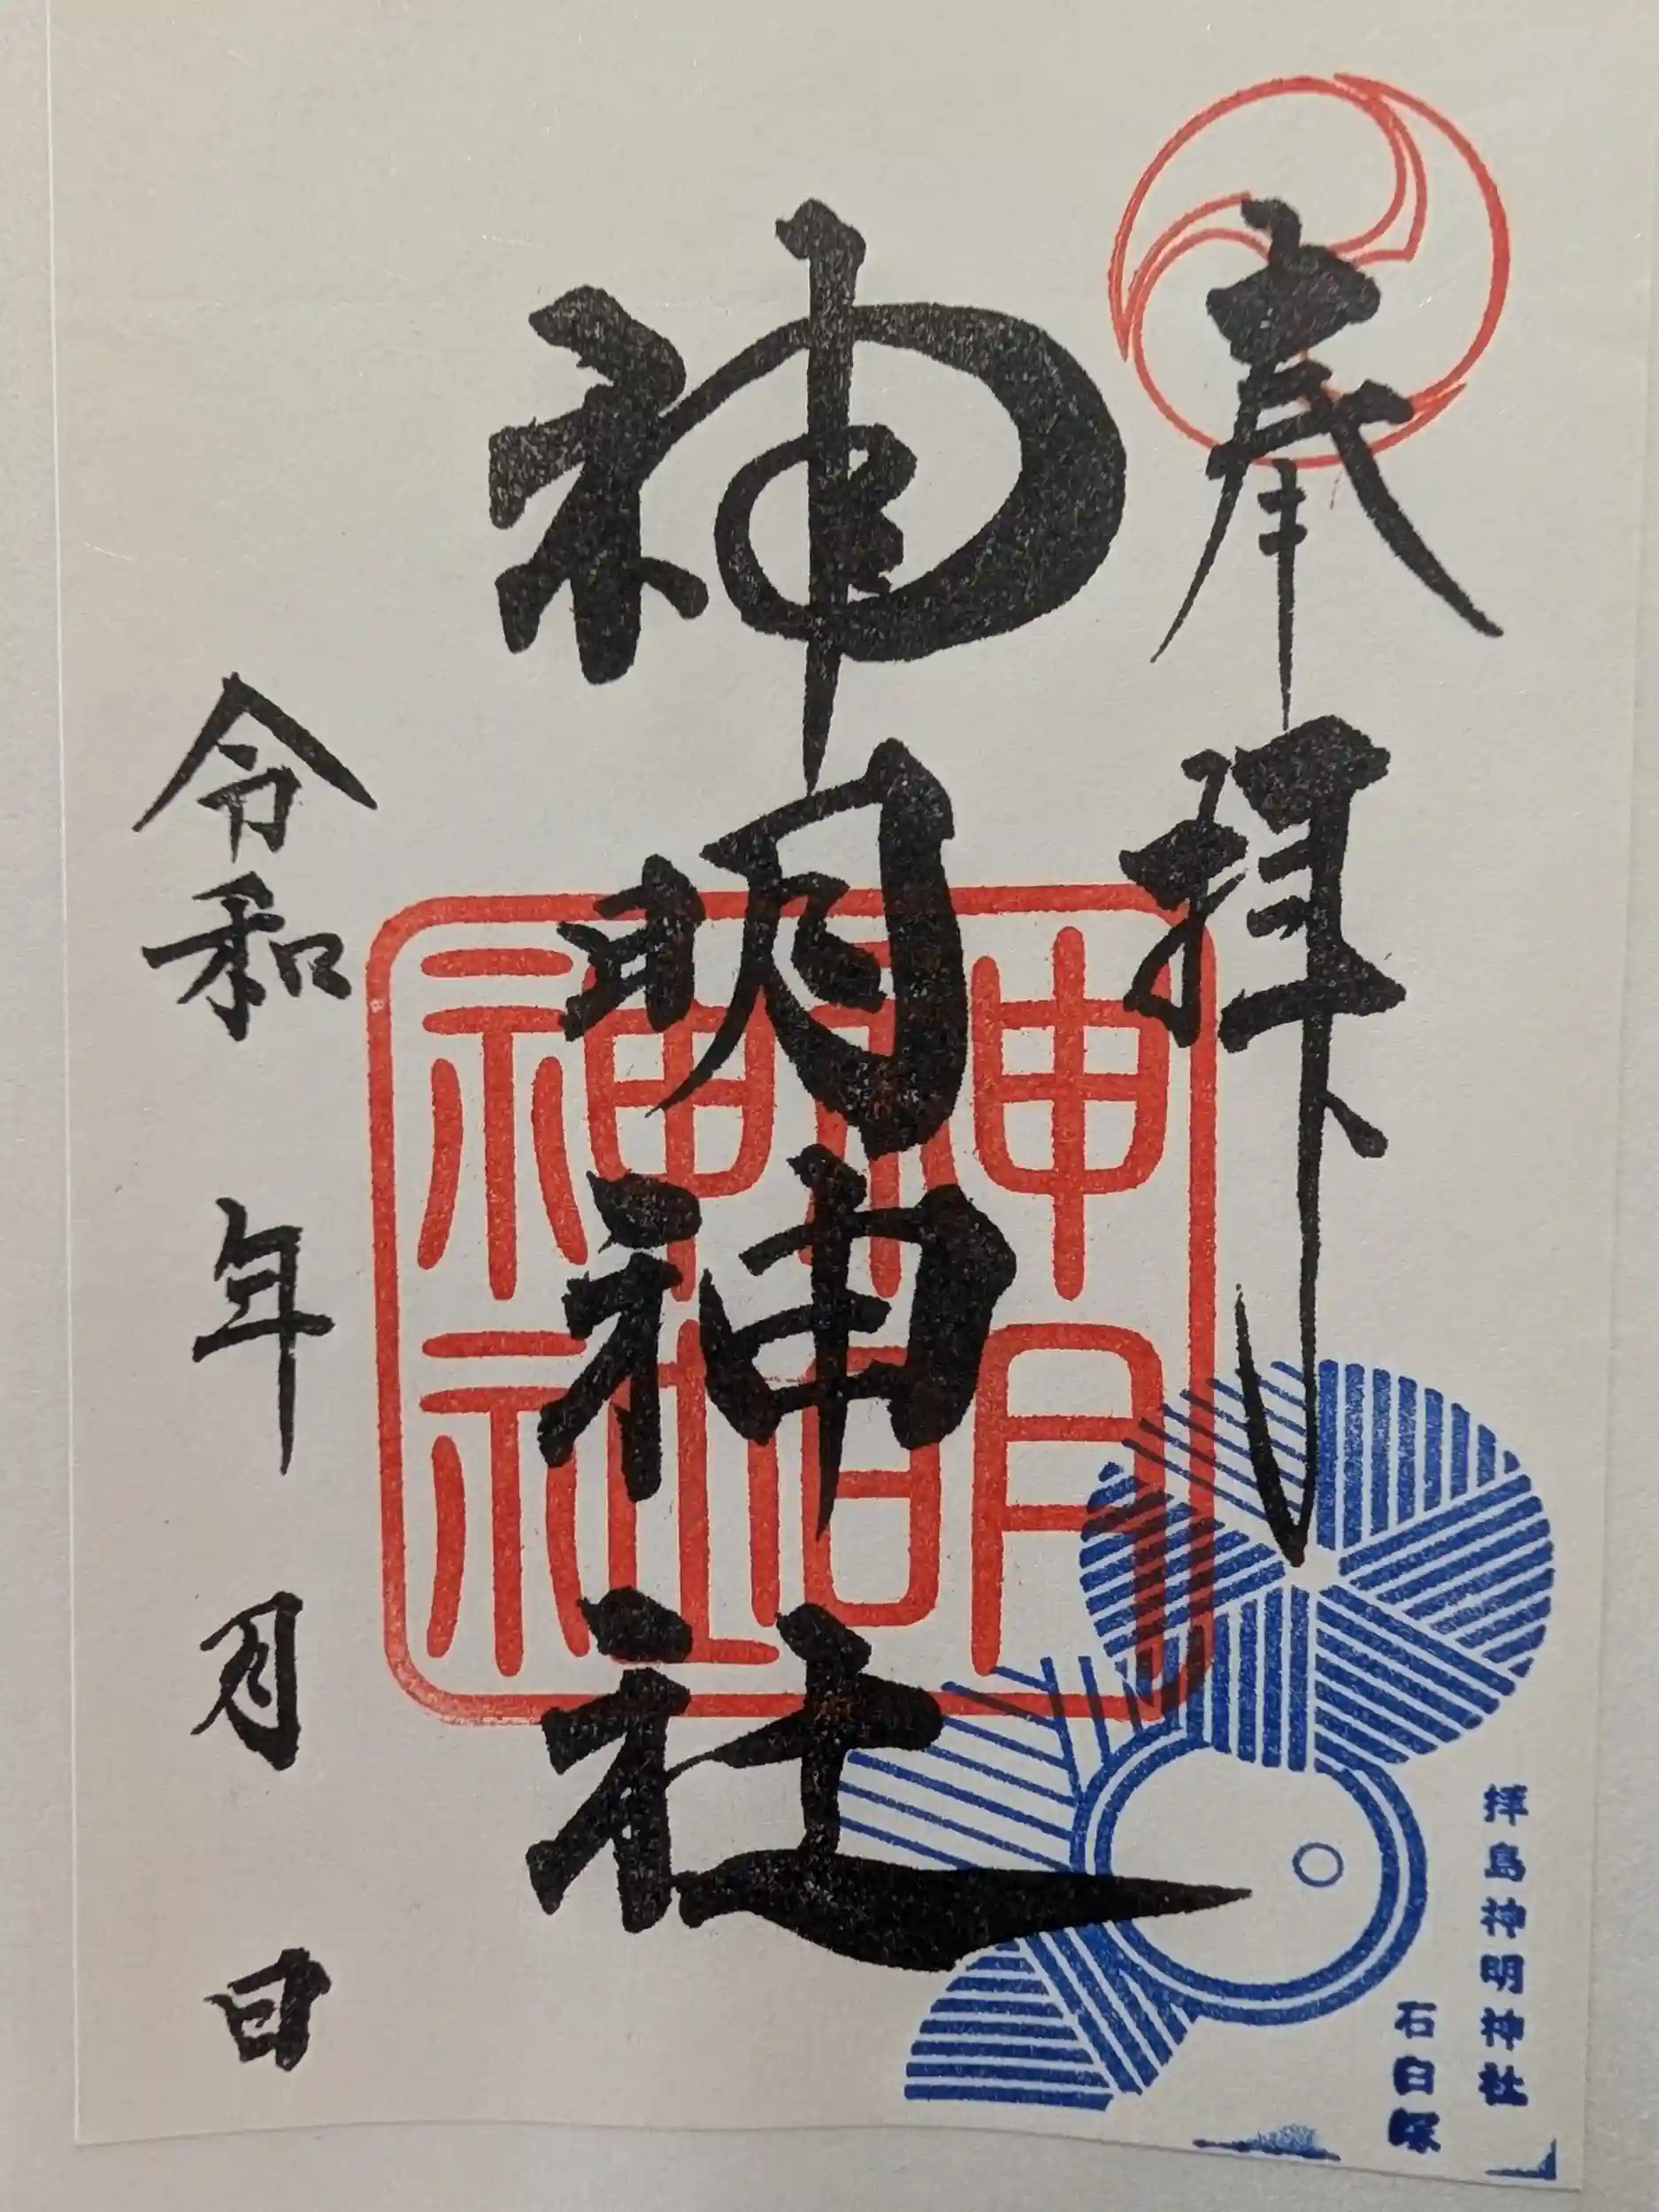 奉拝
神明神社
令和 年 月 日
神明
神明
神社
拝島神明神社
石臼塚